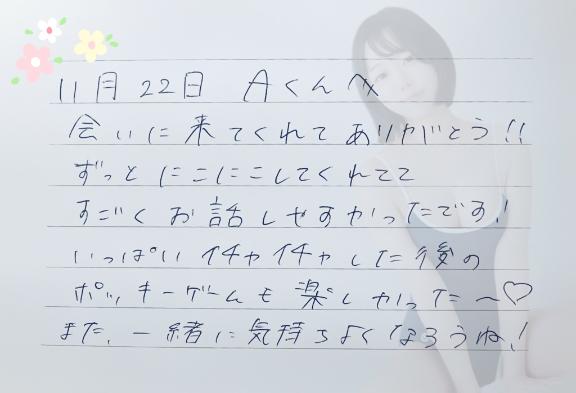 11月22日 Aくんへ
会いに来てくれてありがとう!!
ずっとにこにこしてくれてて
すごくお話しやすかったです!
いっぱいイチャイチャした後の
ポッキーゲームも楽しかった〜♡
また、一緒に気持ちよくなろうね!